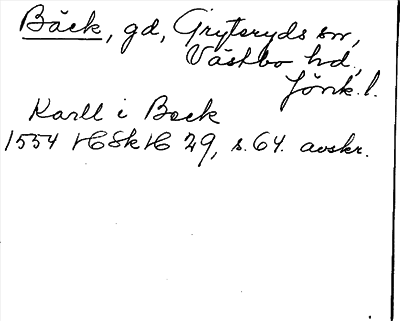 Bäck, gd, Gryteryds sn,
Västbo hd,
Jönk. l.
Karll i Beck
1554 HSkH 29, s. 64. avskr.